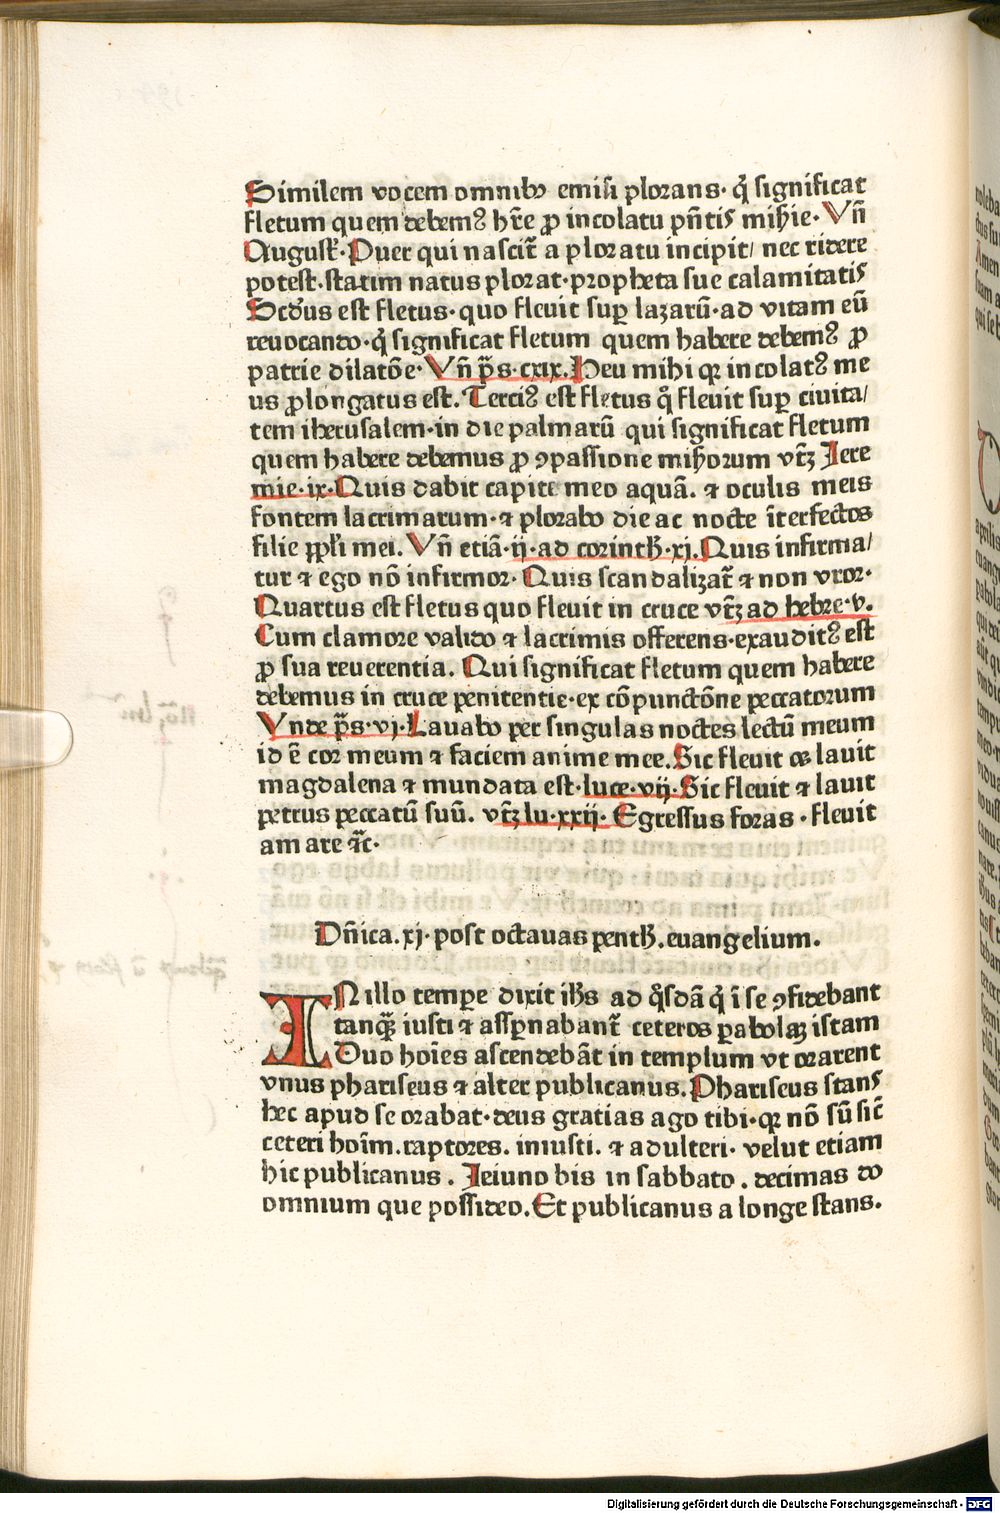 Similem vocem omnibꝯ emisi plorans· q̇ significat
fletum quem debemꝰ hr̄e ꝓ incolatu pn̄tis miẜie· Vn̄
Augusť· Puer qui nascit̄ a ploratu incipit/ nec ridere
potest· statim natus plorat· propheta sue calamitatis
Scd̄us est fletus· quo fleuit suꝑ lazarū· ad vitam eū
reuocando· q̇ significat fletum quem habere debemꝰ ꝓ
patrie dilatōe· Vn̄ p̄s· cxix. Heu mihi qꝛ incolatꝰ me
us ꝓlongatus est. Terciꝰ est fletus q̊ fleuit suꝑ ciuita/
tem iherusalem· in die palmarū qui significat fletum
quem habere debemus ꝓ ꝯpassione miẜorum vt̄ꝫ Jere
mie· ix· Quis dabit capiti meo aquā. ⁊ oculis meis
fontem lacrimarum· ⁊ plorabo die ac nocte īterfectos
filie ꝓpl̄i mei. Vn̄ etiā· ij· ad corintħ· xj. Quis infirma/
tur ⁊ ego nō infirmor· Quis scandalizat̄ ⁊ non vror·
Quartus est fletus quo fleuit in cruce vt̄ꝫ ad hebre· v.
Cum clamore valido ⁊ lacrimis offerens· exauditꝰ est
ꝓ sua reuerentia. Qui significat fletum quem habere
debemus in cruce penitentie· ex cōpunctōne peccatorum
Vnde p̄s· vj· Lauabo per singulas noctes lectū meum
id ē cor meum ⁊ faciem anime mee. Sic fleuit oc̄ lauit
magdalena ⁊ mundata est· luce· vij· Sic fleuit ⁊ lauit
petrus peccatū suū. vt̄ꝫ lu· xxij· Egressus foras · fleuit
amare ⁊c̄·
Dn̄ica. xj· post octauas pentħ. euangelium.
IN illo tempe dixit iħs ad q̊sdā q̇ ī se ꝯfidebant
tanqꝫ iusti ⁊ asꝑnabant̄ ceteros ꝑabolaꝫ istam
Duo hoīes ascendebāt in templum vt orarent
vnus phariseus ⁊ alter publicanus. Phariseus stans
hec apud se orabat· deus gratias ago tibi· qꝛ nō sū sic̄
ceteri hoīm. raptores. iniusti. ⁊ adulteri· velut etiam
hic publicanus . Jeiuno bis in sabbato . decimas do
omnium que possideo. Et publicanus a longe stans.
Digitalisierung gefördert durch die Deutsche Forschungsgemeinschaft - DFG